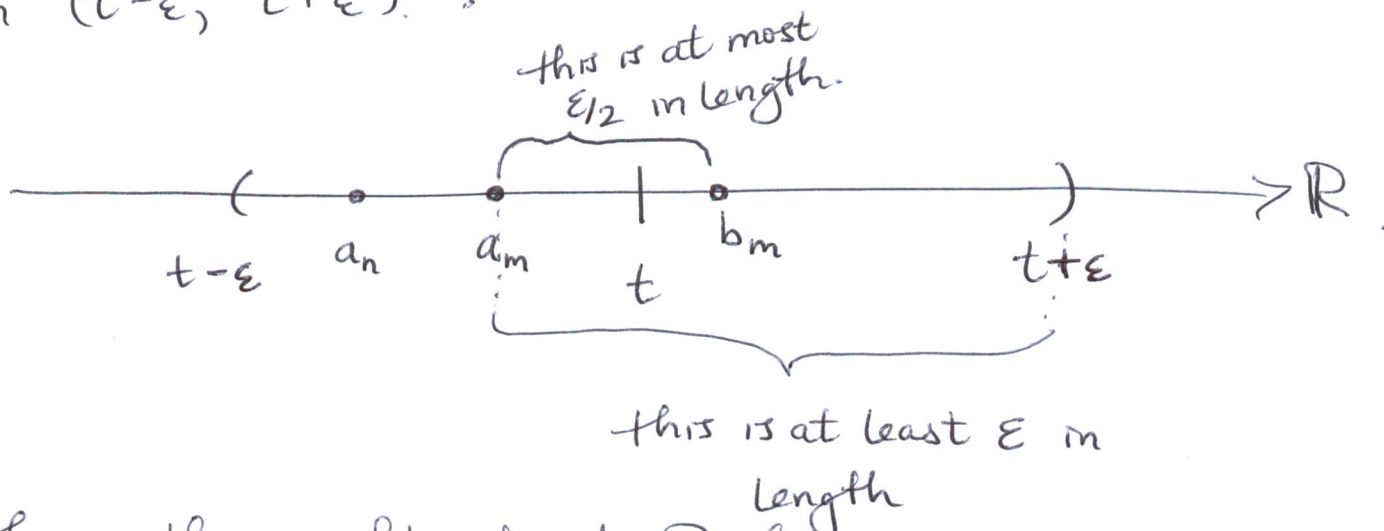 (t-ε, t+ε).
this is at most
ε/2 in length.
( ) ℝ
t-ε aₙ aₘ t bₘ t+ε
this is at least ε in
length